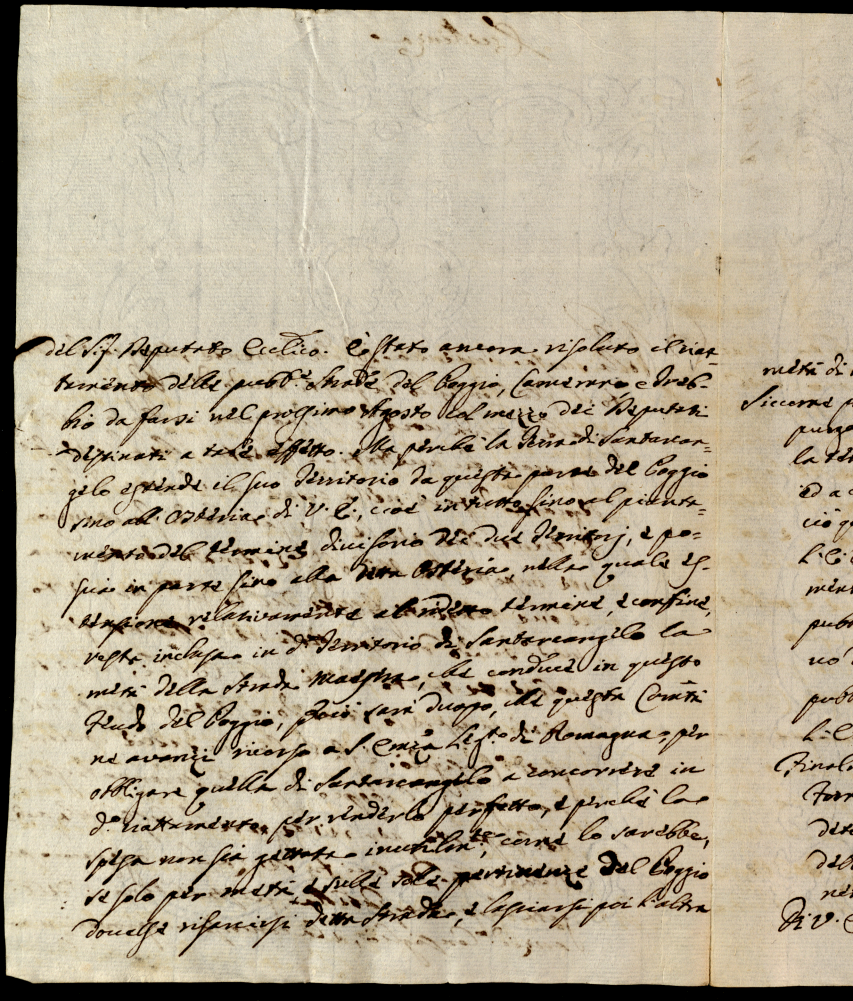 del Sig. Deputato Eccl.co. È stato ancora risoluto il riat=
tamento delle pubb.e Strade del Poggio, Camerano e Treb=
bio da farsi nel prossimo Agosto col mezzo dei Deputati
destinati a tale effetto. Ma perchè la Terra di Santarcan=
gelo estende il suo Territorio da questa parte del Poggio
sino all'Osteria di V. E., cioè in tutto sino al pianta=
mento del termine divisorio dei due Territorj, e po=
scia in parte sino alla detta Osteria, nella quale es=
tensione relativamente al med.mo termine, e confine,
resta inclusa in d.o Territorio di Santarcangelo la
metà della Strada maestra, che conduce in questo
Feudo del Poggio, perciò sarà duopo, che questa Com.tà
ne avanzi ricorso a S. Em.za Leg.to di Romagna, per
obbligare quella di Santarcangelo a concorrere in
d.o riattamento per renderlo perfetto, e perchè la
spesa non sia gettata inutilm.te, come lo sarebbe,
se solo per metà, e sulle sole pertinenze del Poggio
dovesse risarcirsi detta Strada, e lasciarsi poi l'altra
metà di
Siccome
la
ed a
pubb
Di V.